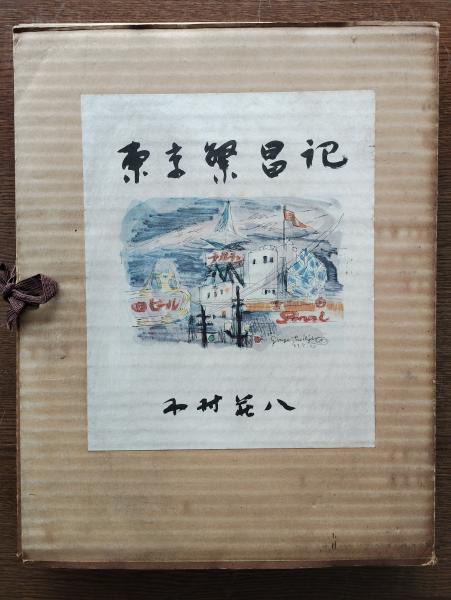 東京繁昌記
ナイトラン
ビール
Ginza twilight
木村荘八